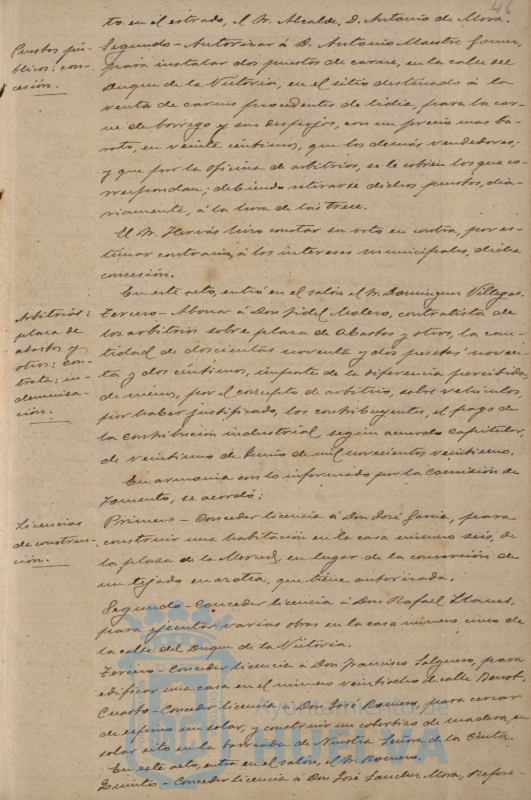 46
to en el estrado, el Sr. Alcalde, D. Antonio de Mora.
Puestos pú-
blicos: con-
cesión.
Segundo - Autorizar á D. Antonio Maestre Gomez,
para instalar dos puestos de carne, en la calle del
Duque de la Victoria, en el sitio destinado á la
venta de carnes procedentes de lidia, para la car-
ne de borrego y sus despojos, con un precio mas ba-
rato, en veinte céntimos, que los demás vendedores;
y que por la oficina de arbitrios, se le cobren los que co-
rrespondan; debiendo retirarse dichos puestos, dia-
riamente, á la hora de las trece.
El Sr. Hervás hizo constar su voto en contra, por es-
timar contraria, á los intereses municipales, dicha
concesión.
En este acto, entró en el salón el Sr. Dominguez Villegas.
Arbitrios:
plaza de
abastos y
otros; con-
trata; in-
demniza-
ción.
Tercero - Abonar á Don Fidel Molero, contratista de
los arbitrios sobre plaza de Abastos y otros, la can-
tidad de doscientas noventa y dos pesetas noven-
ta y dos céntimos, importe de la diferencia percibida,
de menos, por el concepto de arbitrio, sobre vehículos,
por haber justificado, los contribuyentes, el pago de
la contribución industrial según acuerdo capitular,
de veintiuno de Junio de mil novecientos veintiuno.
En armonia con lo informado por la Comisión de
Fomento, se acordó:
Licencias
de construc-
ción.
Primero - Conceder licencia á Don José Garcia, para
construir una habitación en la casa número seis, de
la plaza de la Merced, en lugar de la conversión de
un tejado en azotea, que tiene autorizada.
Segundo - Conceder licencia á Don Rafael Llanes,
para ejecutar varias obras en la casa número cinco de
la calle del Duque de la Victoria.
Tercero - Conceder licencia á Don Francisco Salguero, para
edificar una casa en el número veintiocho de calle
Cuarto - Conceder licencia á Don José Romero, para cercar
de espino un solar, y construir un cobertizo de madera, en
solar sito en la barriada de Nuestra Señora de la Cinta.
En este acto, entra en el salón, el Sr. Romero.
Quinto - Conceder licencia á Don José Sanchez Mora,